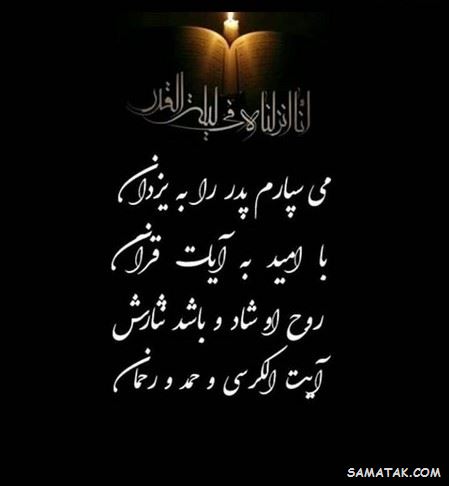 انا انزلناه فی لیلة القدر
می سپارم پدر را به یزدان
با امید به آیات قرآن
روح او شاد و باشد نثارش
آیت الکرسی و حمد و رحمان
SAMATAK.COM